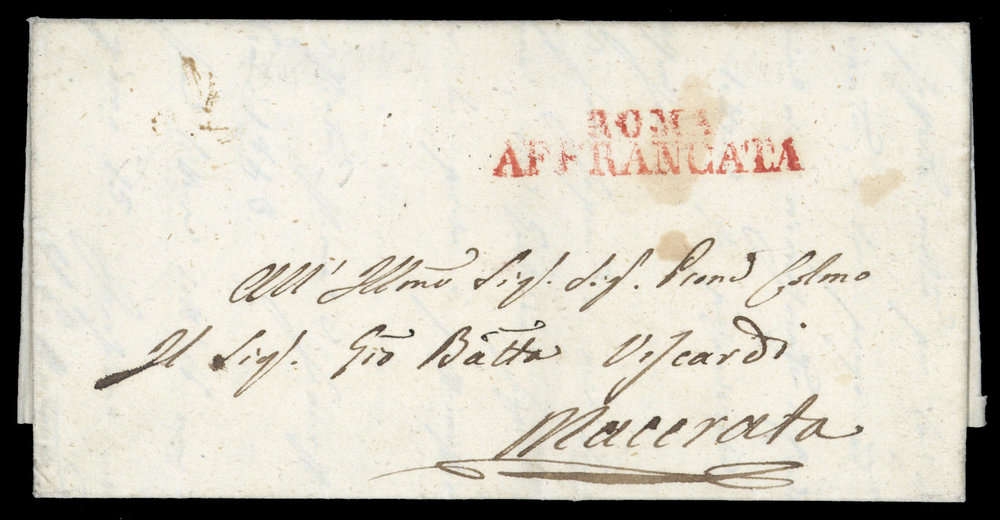 ROMA
AFFRANCATA
All' Illmo Sig. Sig. Pron Colmo
Il Sig. Gio Batta Viscardi
Macerata